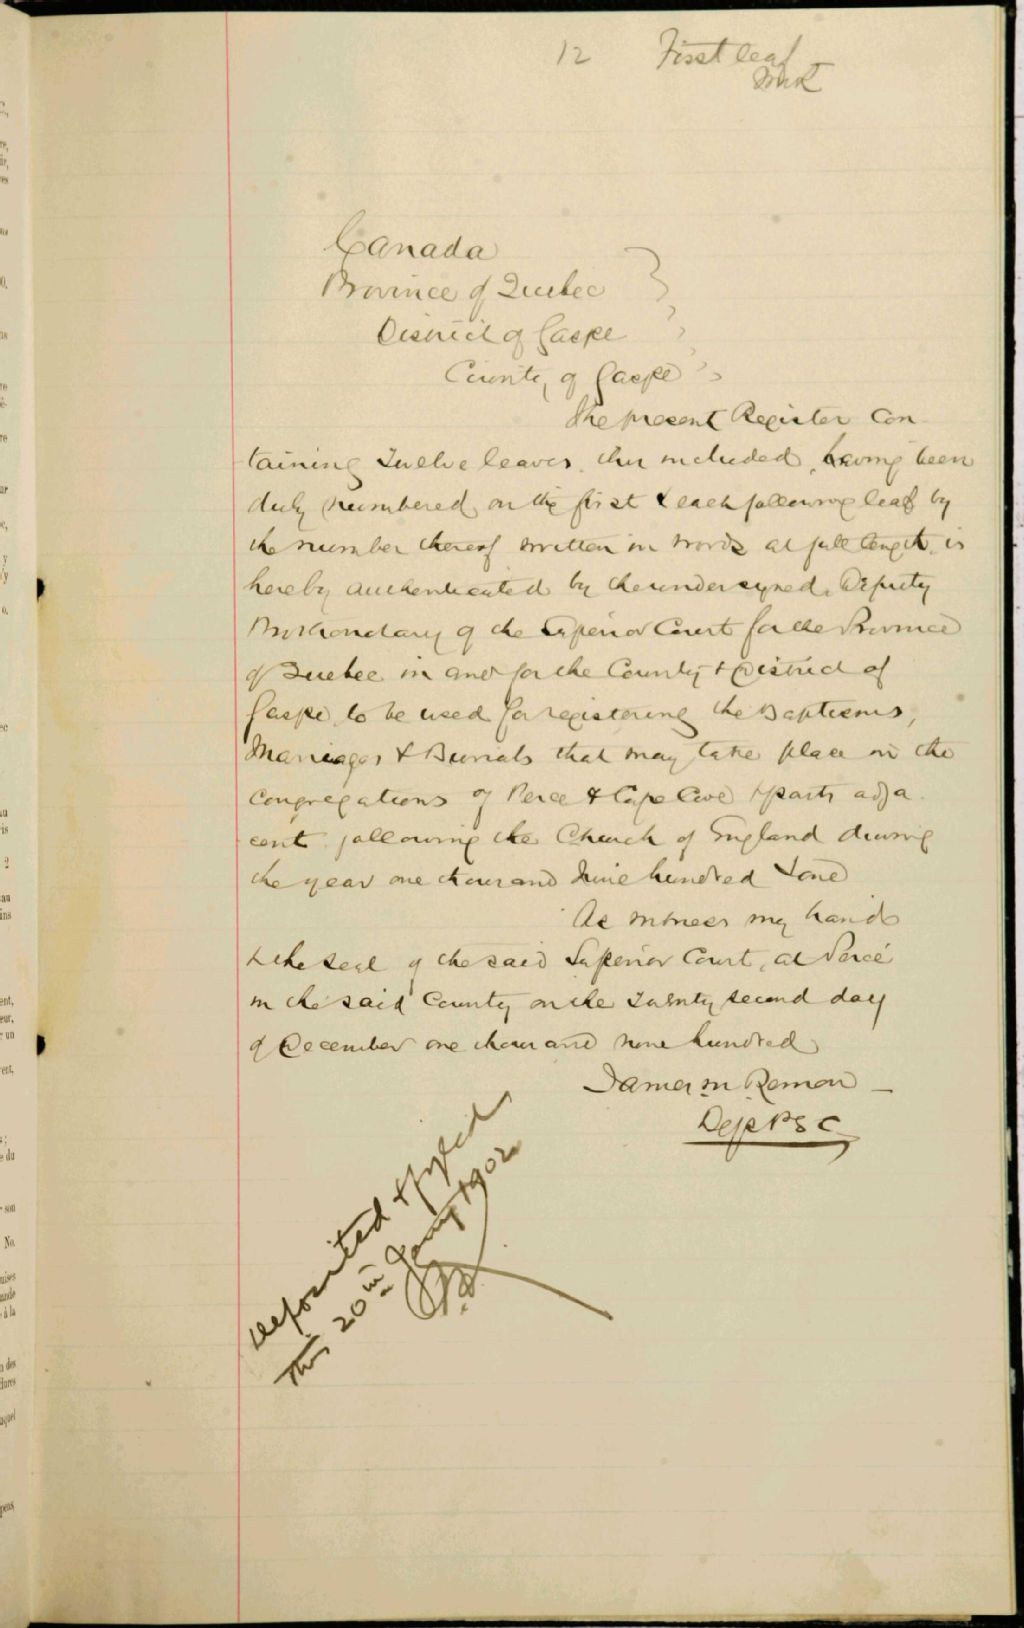 12 First leaf
Canada
Province of Quebec
District of Gaspe
County of Gaspé
The present Register Con
taining Twelve leaves, this included, having been
duly numbered on the first & each following leaf by
the number thereof written in words at full length, is
hereby authenticated by the undersigned, Deputy
Prothonotary of the Superior Court for the Province
of Quebec in and for the County & District of
Gaspé, to be used for registering the Baptisms,
Marriages & Burials that may take place in the
Congregations of Percé & Cape Cove & parts adja
cent following the Church of England during
the year one thousand Nine hundred & one
As witness my hand
& the seal of the said Superior Court, at Percé
in the said County on the Twenty second day
of December one thousand nine hundred
James m Remon
Dep P S C
Deposited & fyled
this 20th Jany 1902